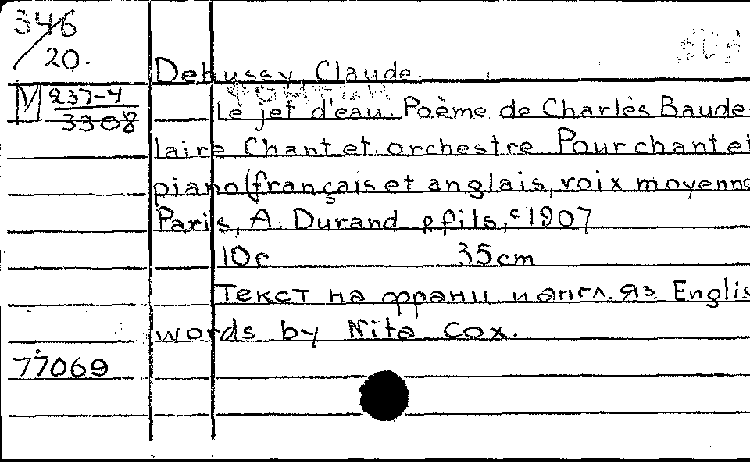 346
/20.
Debussy, Claude.
M 237-4
3308
Le jet d'eau. Poème de Charles Baude
laire Chant et orchestre Pour chant et
piano (français et anglais, voix moyenne
Paris, A. Durand & fils, c 1907
10c 35cm
Текст на франц и англ. яз Englis
words by Nita Cox.
77069